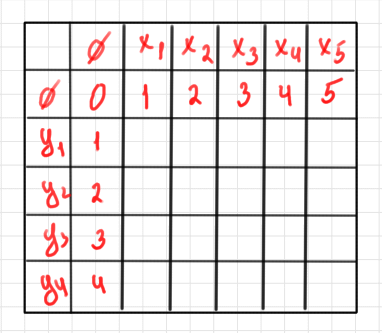 ∅ x1 x2 x3 x4 x5
∅ 0 1 2 3 4 5
y1 1
y2 2
y3 3
y4 4